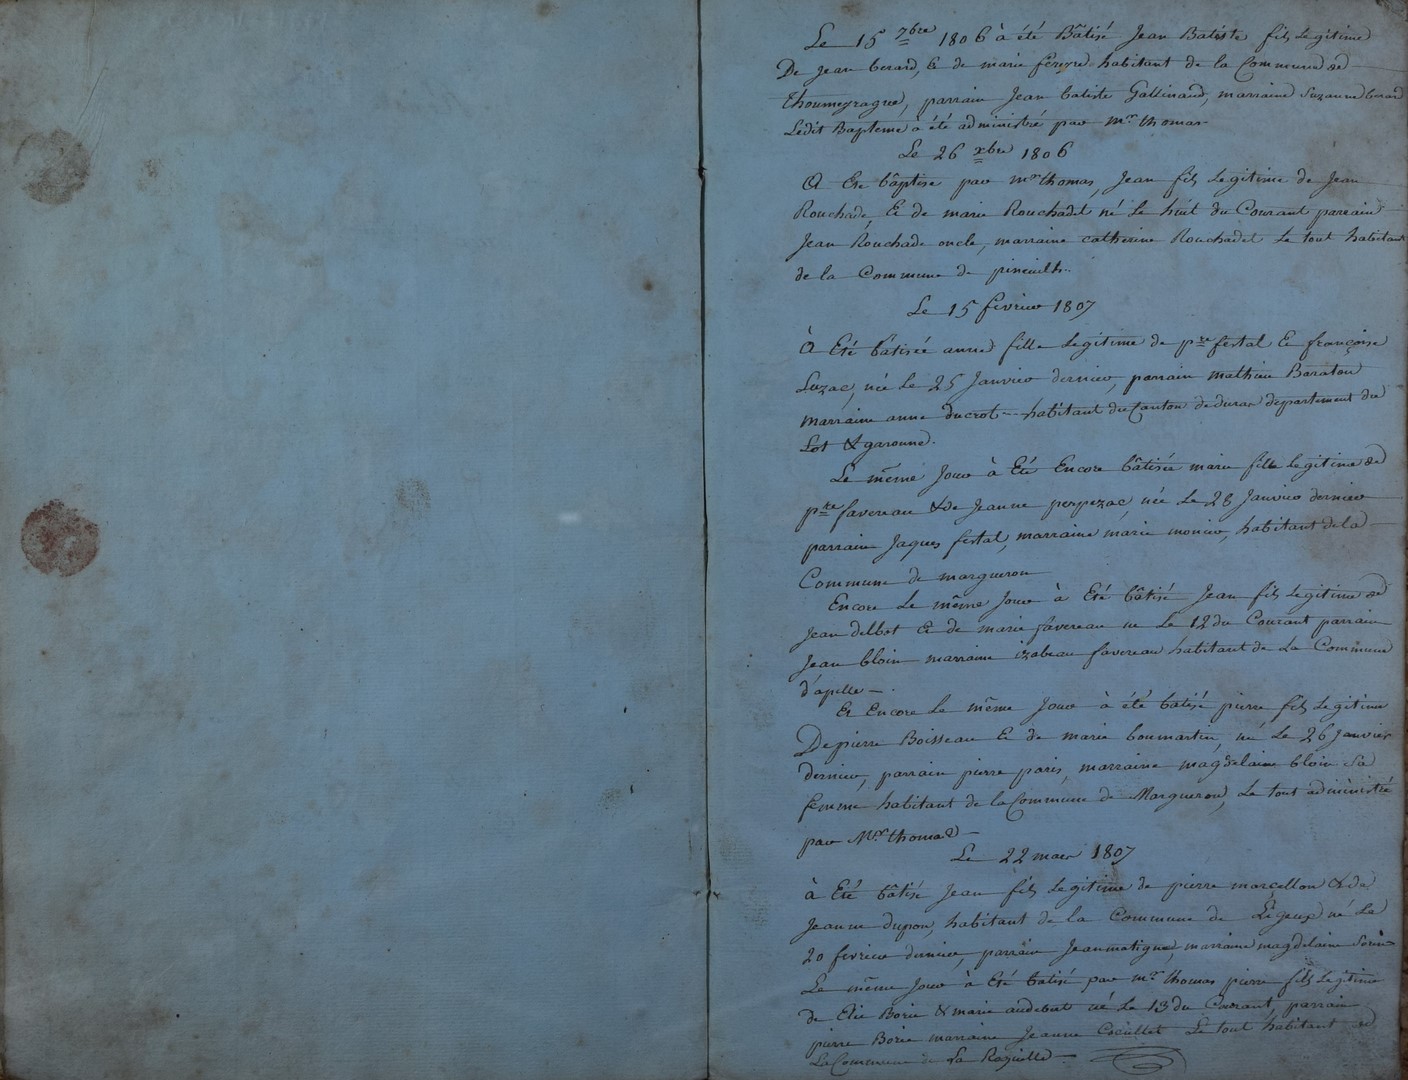 Le 15 7bre 1806 à été Bâtisé Jean Batiste fils Legitime
De Jean berard, & de marie feyre habitant de la Commune de
Thoumeyragues, parrain Jean batiste Gallinaud, marraine Suzanne berard
Ledit Bapteme à été administré par Mr. thomas
Le 26 xbre 1806
A Été bâptisé par mr thomas, Jean fils Legitime de Jean
Rouchade, & de marie Rouchadet né Le huit du Courant parrain
Jean Rouchade oncle, marraine catherine Rouchadet Le tout habitant
de la Commune de pineuilh.
Le 15 fevrier 1807
À Eté bâtisée anne fille Legitime de pre festal & françoise
Luzac, née Le 25 Janvier dernier, parrain mathieu Baraton
marraine anne ducrot habitant du Canton de duras departement du
Lot & garonne.
Le même Jour à Eté Encore bâtisée marie fille Legitime de
pre favereau & de Jeanne perpezac, née Le 28 Janvier dernier
parrain Jaques festal, marraine marie monier, habitant de la
Commune de margueron
Encore Le même Jour à Eté bâtisé Jean fils Legitime de
Jean delbot & de marie favereau né Le 12 du Courant parrain
Jean bloin marraine izabeau favereau habitant de La Commune
d'apelle
Et Encore Le même Jour à été batisé pierre fils Legitime
De pierre Boisseau & de marie boumartin, né Le 26 Janvier
dernier, parrain pierre paris, marraine magdelaine bloin Sa
femme habitant de la Commune de Margueron, Le tout administré
par Mr. thomas
Le 22 mars 1807
à Eté bâtisé Jean fils Legitime de pierre marcellou & de
Jeanne dupon, habitant de la Commune de Ligeux né Le
20 fevrier dernier, parrain Jean matigne, marraine magdelaine
Le même Jour à Eté batisé par mr. thomas pierre fils Legitime
de Elie Borie & marie audebert né Le 13 du Courant, parrain
pierre Borie marraine Jeanne Le tout habitant de
La Commune de La Roquille